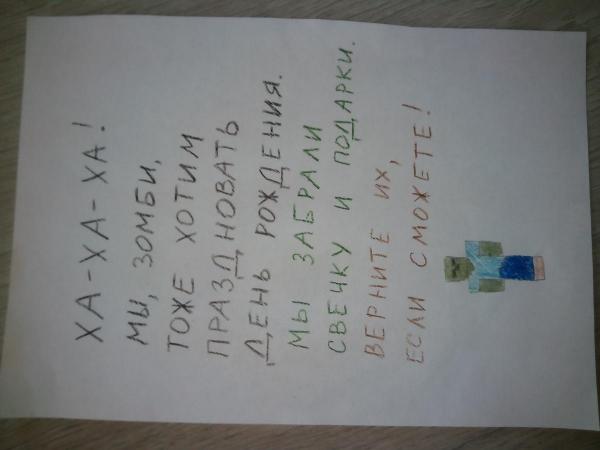 ХА-ХА-ХА!
МЫ, ЗОМБИ,
ТОЖЕ ХОТИМ
ПРАЗДНОВАТЬ
ДЕНЬ РОЖДЕНИЯ.
МЫ ЗАБРАЛИ
СВЕЧКУ И ПОДАРКИ.
ВЕРНИТЕ ИХ,
ЕСЛИ СМОЖЕТЕ!